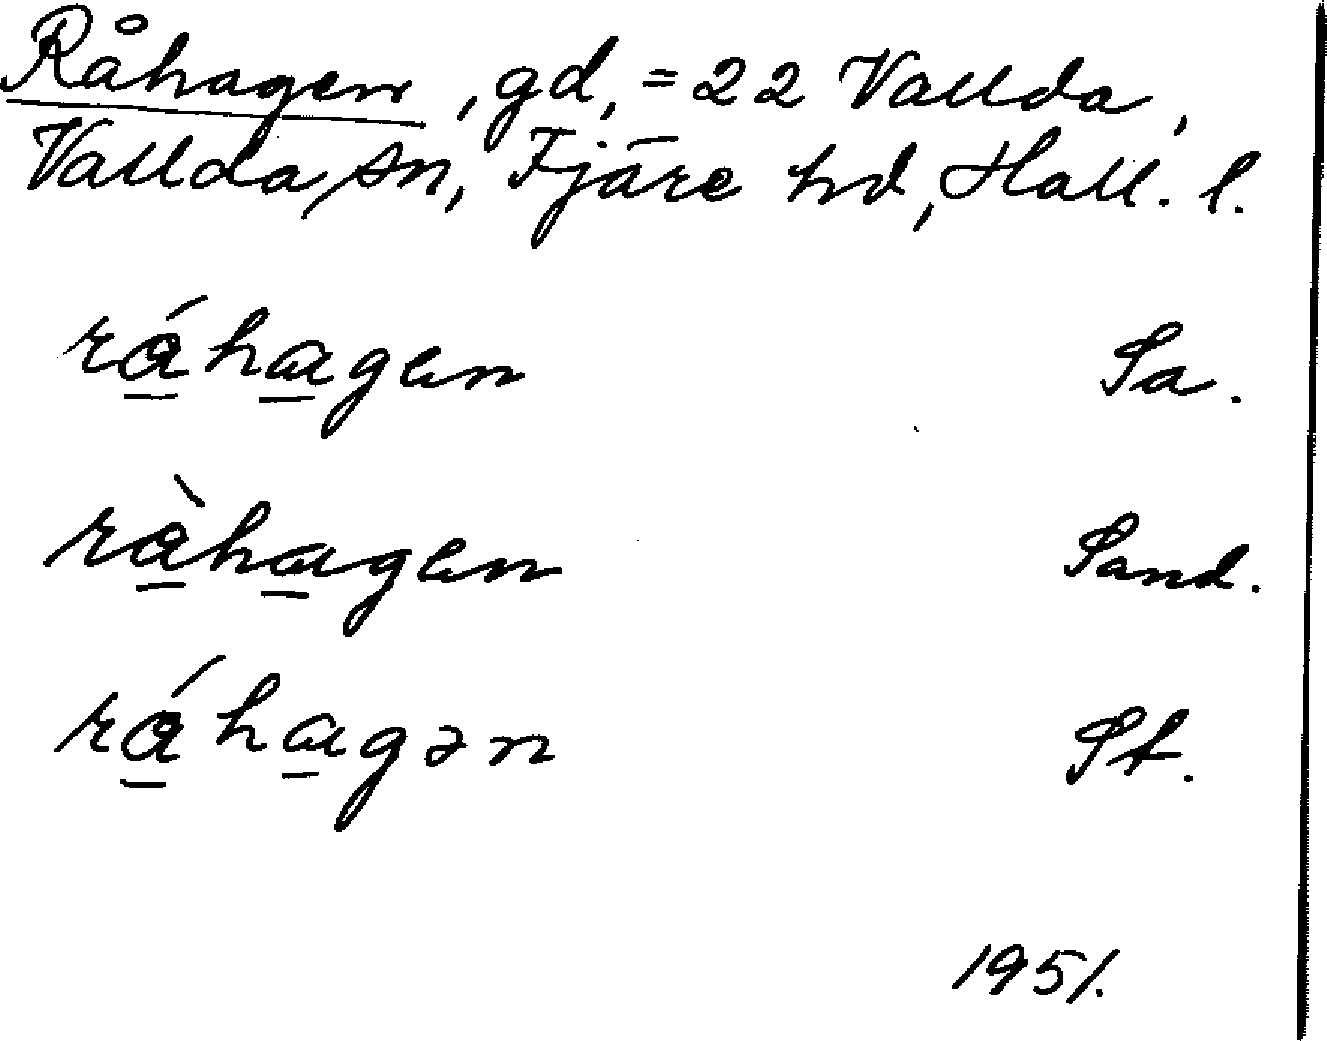 Råhagen, gd, = 22 Vallda,
Vallda sn, Fjäre hd, Hall. l.
råhagen Sa.
råhagen Sand.
råhagən St.
1951.